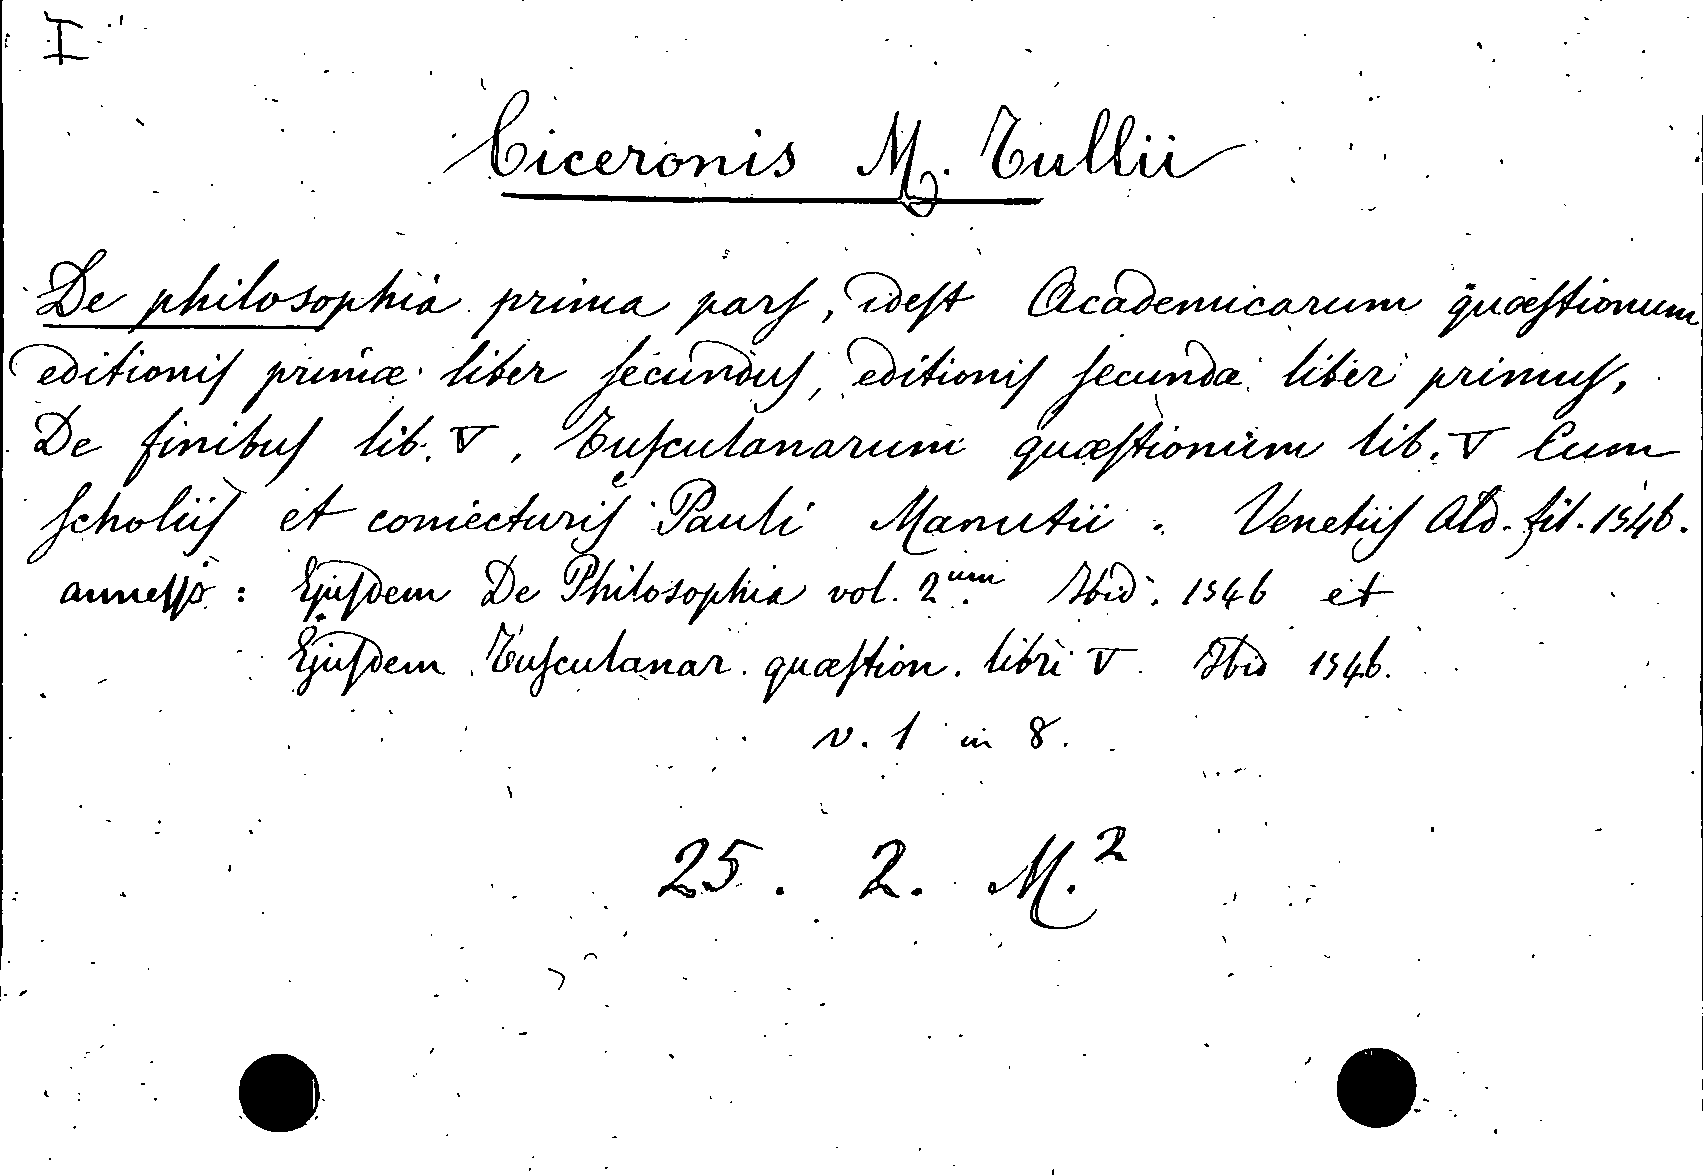 I
Ciceronis M. Tullii
De philosophia prima pars, idest Academicarum quæstionum
editionis primæ liber secundus, editionis secundæ liber primus,
De finibus lib. V, Tusculanarum quæstionum lib. V Cum
scholiis et coniecturis Pauli Manutii. Venetiis Ald. fil. 1546.
annesso: Ejusdem De Philosophia vol. 2.um Ibid. 1546 et
Ejusdem Tusculanar. quæstion. libri V. Ibid 1546.
v. 1 in 8.
25. 2. M.2